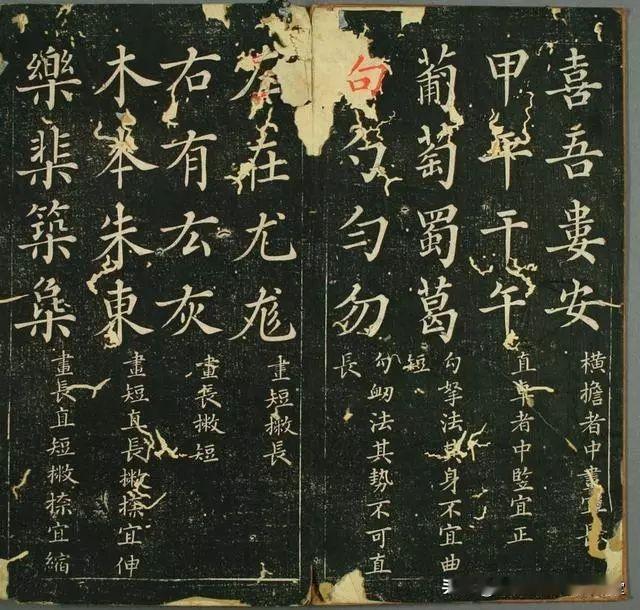 喜吾婁安 橫擔者中畫宜長
甲平干午 直卓者中竪宜正
葡萄蜀葛 勾拏法其身不宜曲
短
句勺勻勿 勾衂法其勢不可直
長
左在尤尨 畫短撇長
右有厷灰 畫長撇短
木本朱東 畫短直長撇捺宜伸
樂棐築 畫長直短撇捺宜縮